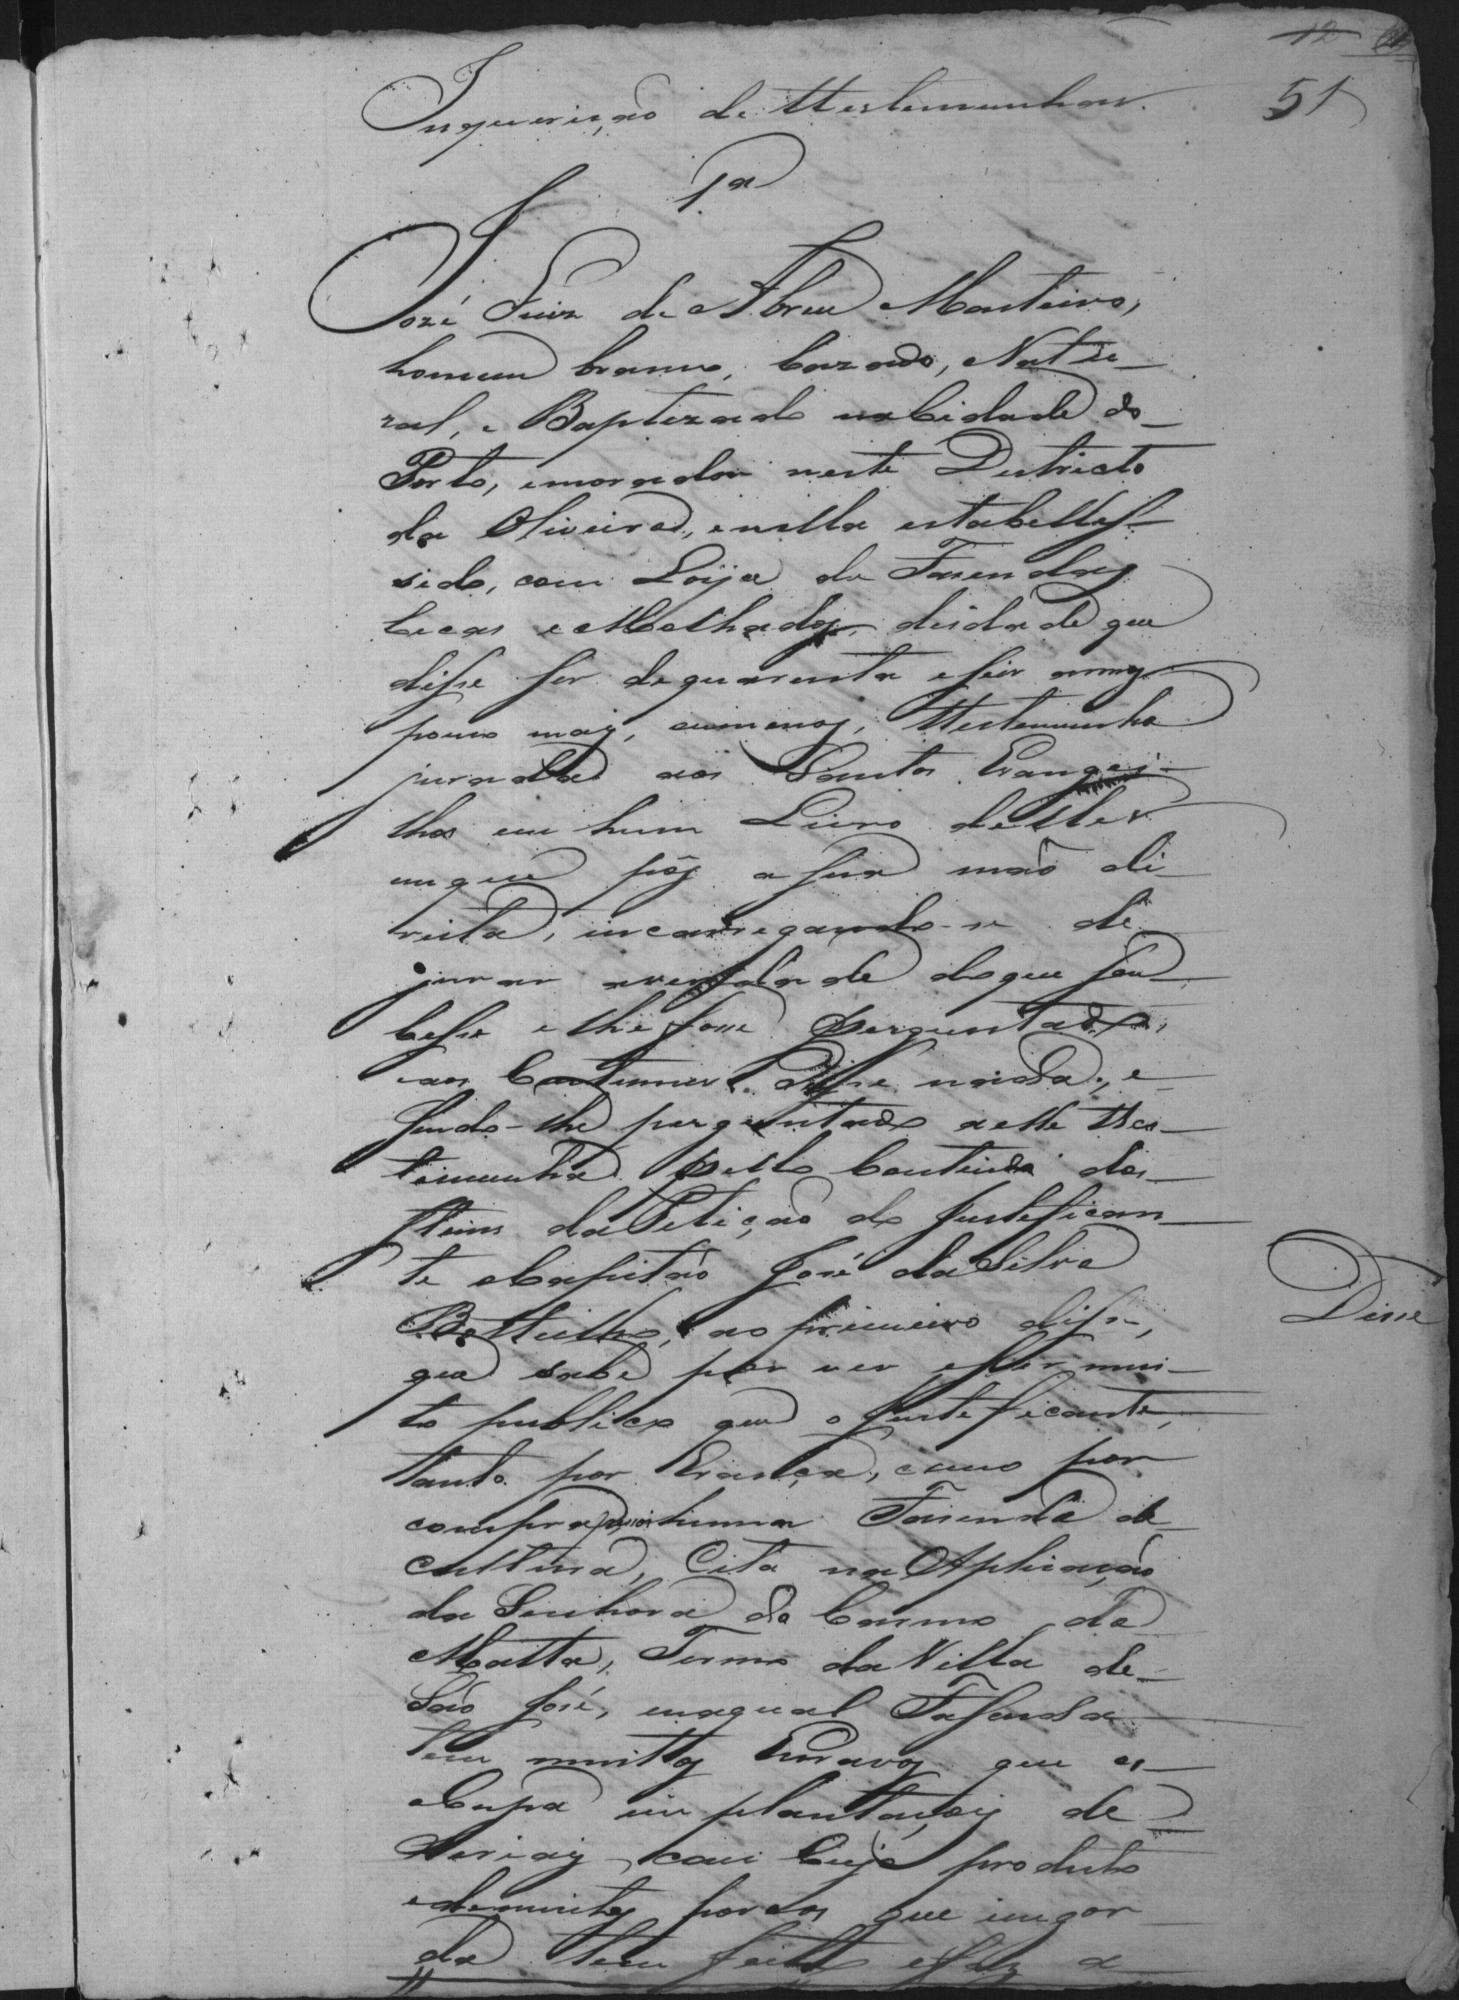 12
51
Inquerição de Ttestemunhas.
1ª
José Luiz de Abreu Monteiro,
homem branco, Cazado, Natu-
ral, e Baptizado na Cidade do
Porto, emorador neste Destricto
da Oliveira, enella estabellesf-
sido, com Loija de Fazendas
Secas eMolhados, deidade que
disse ser dequarenta eseis annos
pouco mais, oumenos, Ttestemunha
jurada aos Santos Evangei-
lhos em hum Livro delles
emque pôs a sua mão di-
reita, incarregando-se de
jurar averdade doque sou-
besse elhe fosse perguntado,
eaos Custumes disse nada, e
sendo-lhe perguntado aelle Ttes-
temunha pello Conteúdo dos
Itens daPetição do Justefican-
te oCapitão José daSilva
Bottelho, ao primeiro disse,
que sabe por ver eser mui-
to publico que o Justeficante,
tanto por Erança, como por
compra possui huma Fazenda de
Cultura, Cita na Apliação
da Senhora do Carmo da
Matta, Termo daVilla de
São José, enaqual Fazenda
tem muittos Escravos que os
oCupa em plantaçois de
Deriais, com Cujo produto
edemuitos porcos que ingor-
da tem feito efaz a
Disse